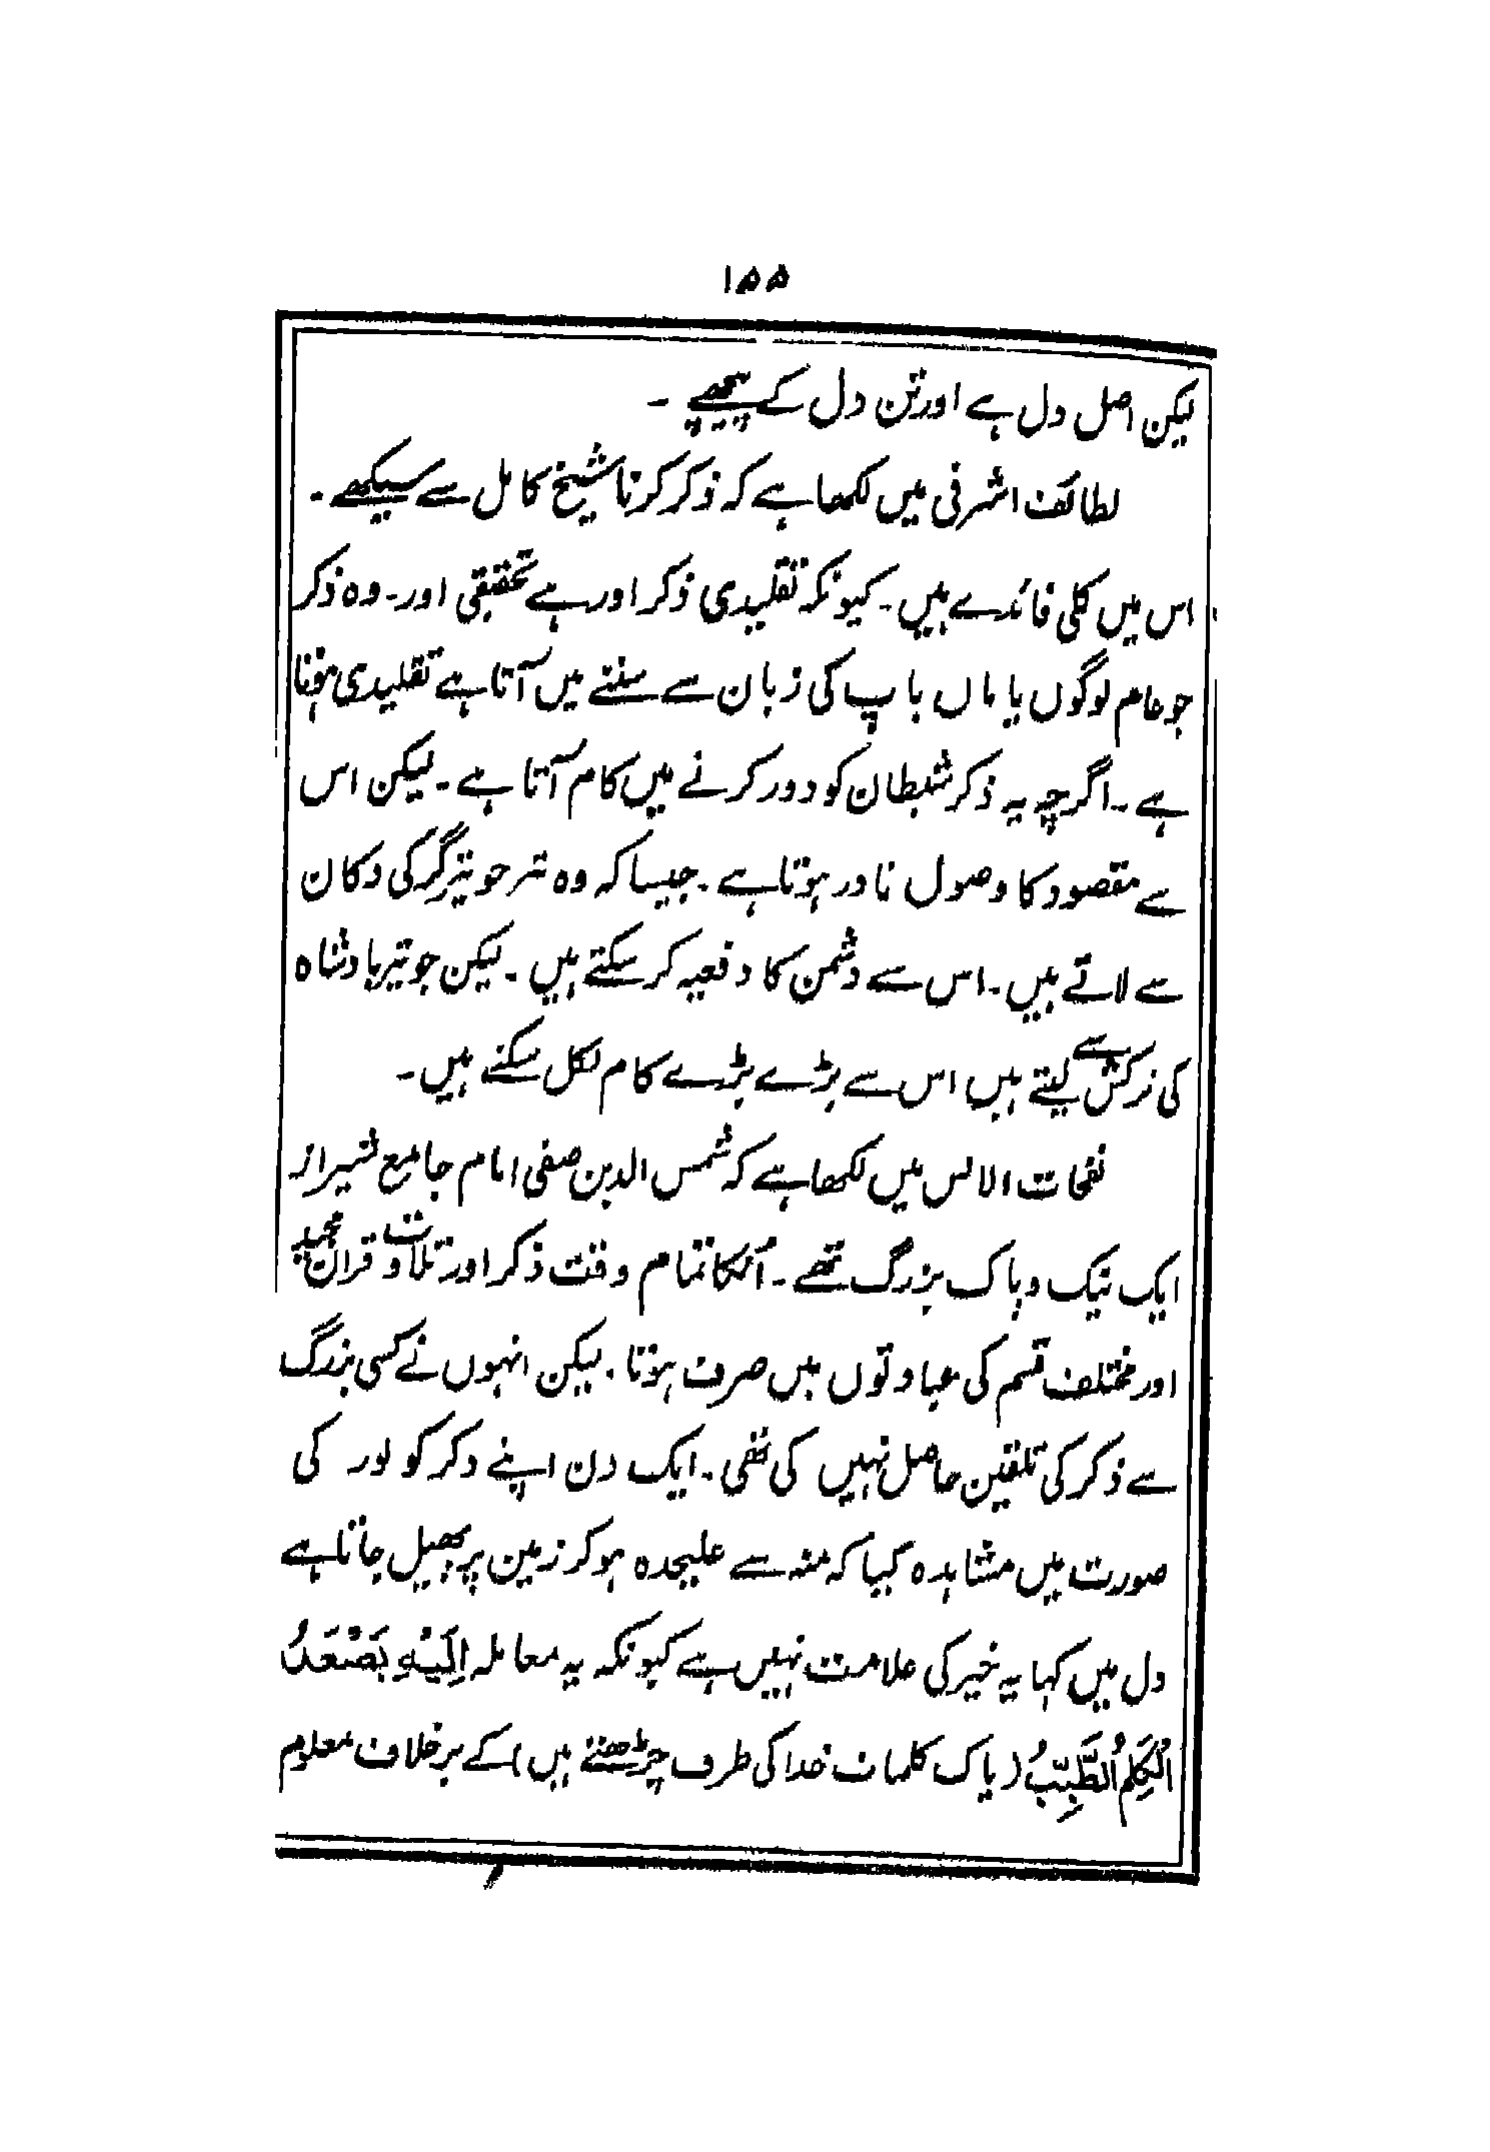 ۱۵۵
لیکن اصل دل ہے اور تن دل کے پیچھے ۔
لطائف اشرفی میں لکھا ہے کہ ذکر کرنا شیخ کامل سے سیکھے ۔
اس میں کلی فائدے ہیں ۔ کیونکہ تقلیدی ذکر اور ہے تحقیقی اور ۔ وہ ذکر
جو عام لوگوں یا ماں باپ کی زبان سے سننے میں آتا ہے تقلیدی ہوتا
ہے ۔ اگرچہ یہ ذکر شیطان کو دور کرنے میں کام آتا ہے ۔ لیکن اس
سے مقصود کا وصول نادر ہوتا ہے ۔ جیسا کہ وہ تیر جو تیر گر کی دکان
سے لاتے ہیں ۔ اس سے دشمن کا دفعیہ کر سکتے ہیں ۔ لیکن جو تیر بادشاہ
کی ترکش سے لیتے ہیں اس سے بڑے بڑے کام نکل سکتے ہیں ۔
نفحات الانس میں لکھا ہے کہ شمس الدین صفی امام جامع شیراز
ایک نیک و پاک بزرگ تھے ۔ اُنکا تمام وقت ذکر اور تلاوت قرآن مجید
اور مختلف قسم کی عبادتوں میں صرف ہوتا ۔ لیکن انہوں نے کسی بزرگ
سے ذکر کی تلقین حاصل نہیں کی تھی ۔ ایک دن اپنے ذکر کو نور کی
صورت میں مشاہدہ کیا کہ منہ سے علیحدہ ہو کر زمین پر پھیل جاتا ہے
دل میں کہا یہ خیر کی علامت نہیں ہے کیونکہ یہ معاملہ اِلَیْہِ یَصْعَدُ
الْکَلِمُ الطَّیِّبُ (پاک کلمات خدا کی طرف چڑھتے ہیں) کے برخلاف معلوم